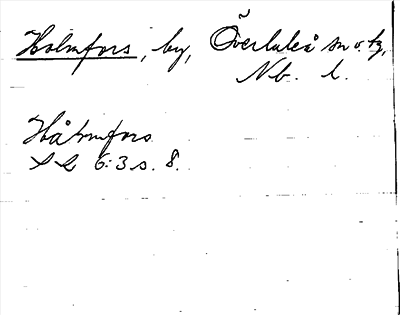 Holmfors, by, Överluleå sn o. tg,
Nb. l.
Håhmfors
SL 6:3 s. 8.